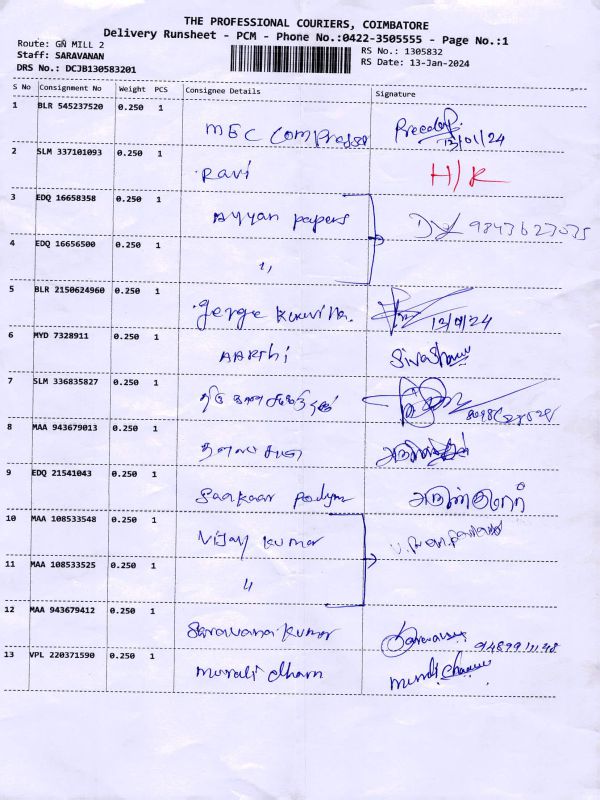 THE PROFESSIONAL COURIERS, COIMBATORE
Delivery Runsheet - PCM - Phone No.:0422-3505555 - Page No.:1
Route: GN MILL 2
Staff: SARAVANAN
DRS No.: DCJB130583201
RS No.: 1305832
RS Date: 13-Jan-2024
S No Consignment No Weight PCS Consignee Details Signature
1 BLR 545237520 0.250 1 MEC 13/01/24
2 SLM 337101093 0.250 1 Ravi H/K
3 EDQ 16658358 0.250 1 Ayyan papers
4 EDQ 16656500 0.250 1 ,,
5 BLR 2150624960 0.250 1 13/01/24
6 MYD 7328911 0.250 1 AARthi
7 SLM 336835827 0.250 1
8 MAA 943679013 0.250 1
9 EDQ 21541043 0.250 1
10 MAA 108533548 0.250 1 Vijay kumar
11 MAA 108533525 0.250 1 ,,
12 MAA 943679412 0.250 1 Saravanakumar
13 VPL 220371590 0.250 1 murali